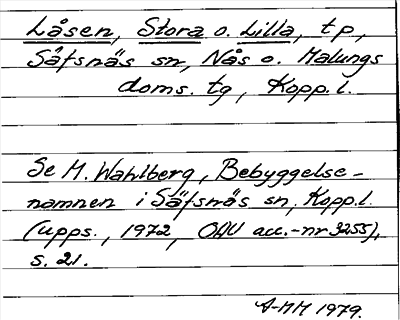 Låsen, Stora o. Lilla, tp,
Säfsnäs sn, Nås o. Malungs
doms. tg, Kopp. l.
Se M. Wahlberg, Bebyggelse-
namnen i Säfsnäs sn, Kopp.l.
(Upps., 1972, OAU acc.-nr 3255),
s. 21.
A-MM 1979.